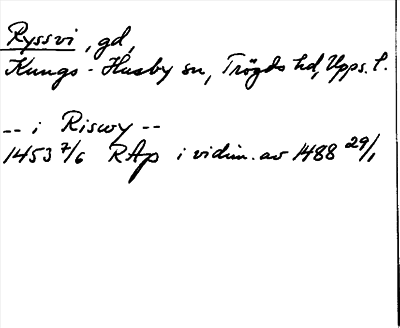 Ryssvi, gd,
Kungs-Husby sn, Trögds hd, Upps. l.
-- i Riswy --
1453 7/6 RAp i vidim. av 1488 29/1